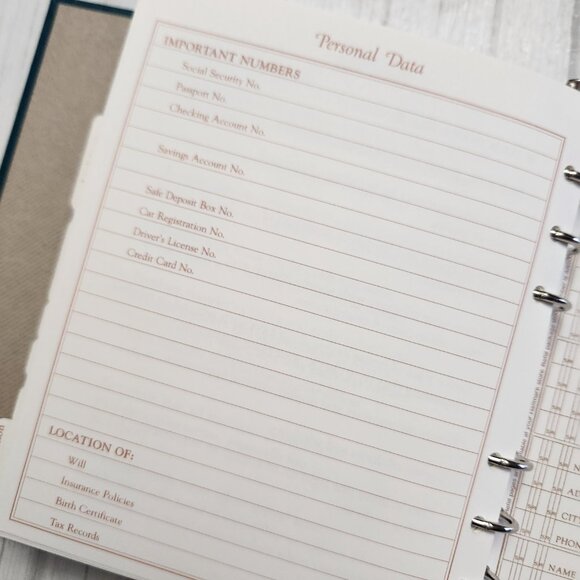 Personal Data
IMPORTANT NUMBERS
Social Security No.
Passport No.
Checking Account No.
Savings Account No.
Safe Deposit Box No.
Car Registration No.
Driver's License No.
Credit Card No.
LOCATION OF:
Will
Insurance Policies
Birth Certificate
Tax Records
CITY
PHONE
NAME